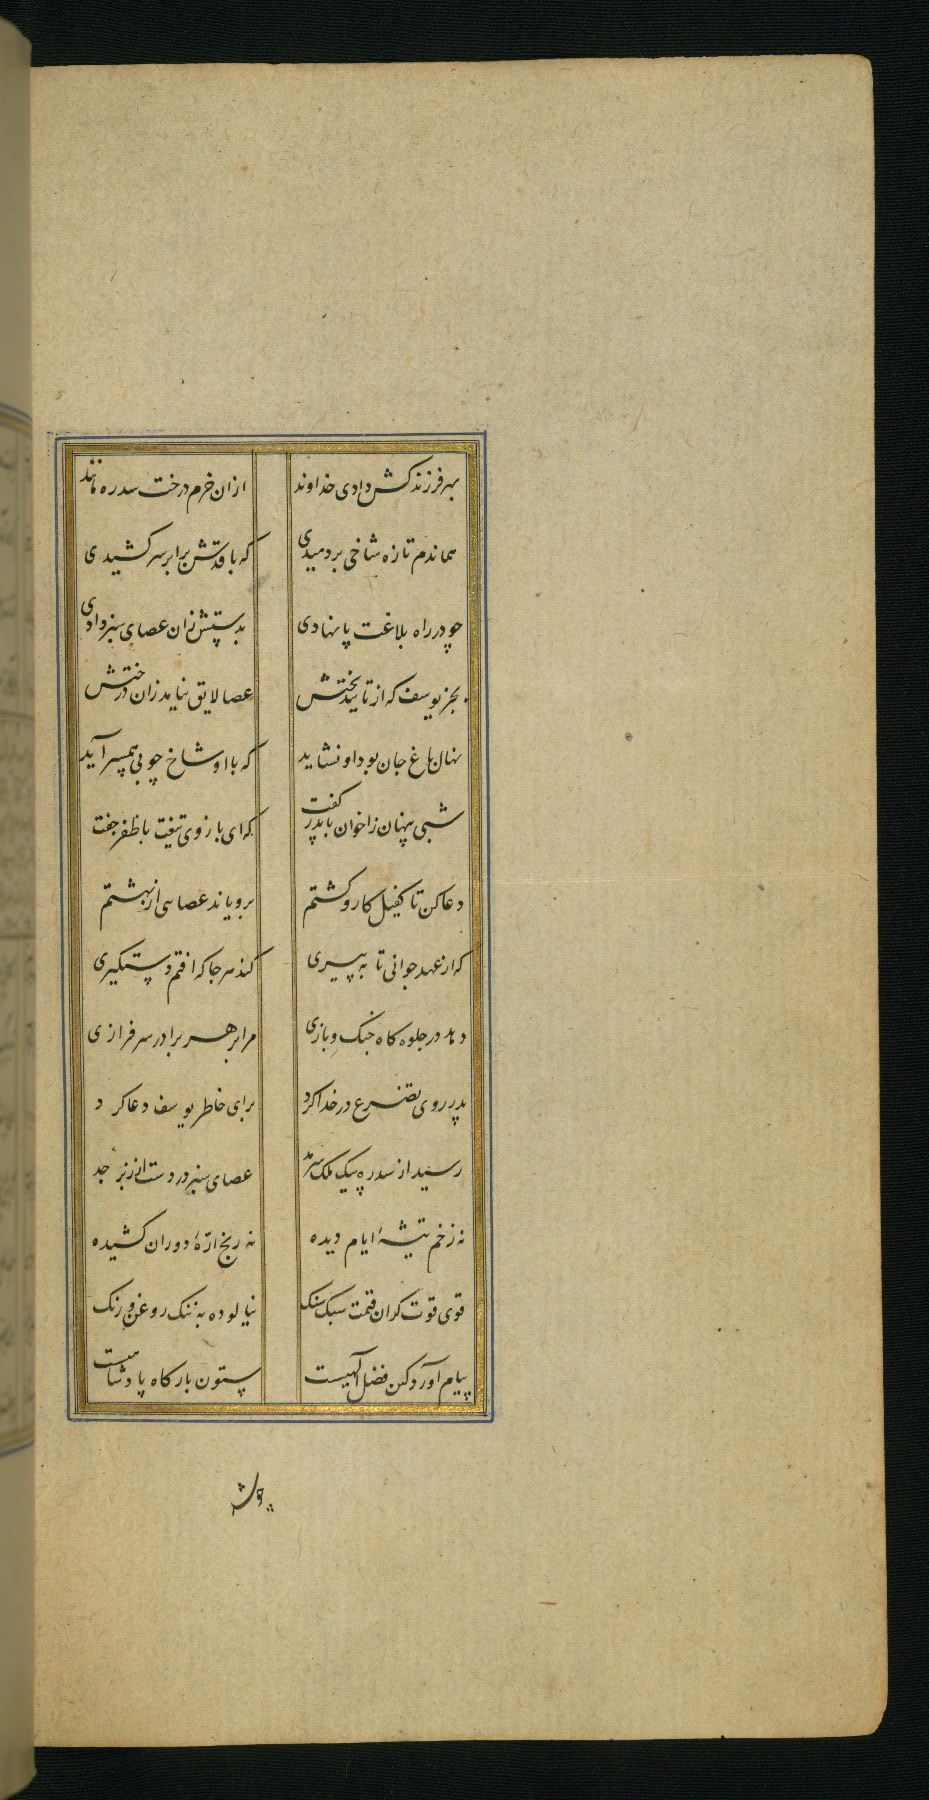 بهر فرزند کش دادی خداوند ازان خرم درخت سدره مانند
هماندم تازه شاخی بردمیدی که با قدش برابر سر کشیدی
چو در راه بلاغت پا نهادی بدستش زان عصای سبز دادی
بجز یوسف که از تایید بختش عصا لایق نیامد زان درختش
نهال باغ جان بود او نشاید که با او شاخ چوبی همسر آید
شبی پنهان ز اخوان با پدر گفت که ای بازوی تیغت با ظفر جفت
دعا کن تا کفیل کار و کشتم برویاند عصایی از بهشتم
که از عهد جوانی تا به پیری کند هر جا که افتم دستگیری
دهد در جلوه کاه جنک و بازی مرا بر هر برادر سرفرازی
پدر روی تضرع در خدا کرد برای خاطر یوسف دعا کرد
رسید از سدره پیک ملک سرمد عصای سبز در دست از زبرجد
نه زخم تیشهٔ ایام دیده نه رنج ارّهٔ دوران کشیده
قوی قوت کران قیمت سبک سنک نیالوده به ننک روغن و رنک
پیام آورد کین فضل الهیست ستون بارکاه پادشاهیست